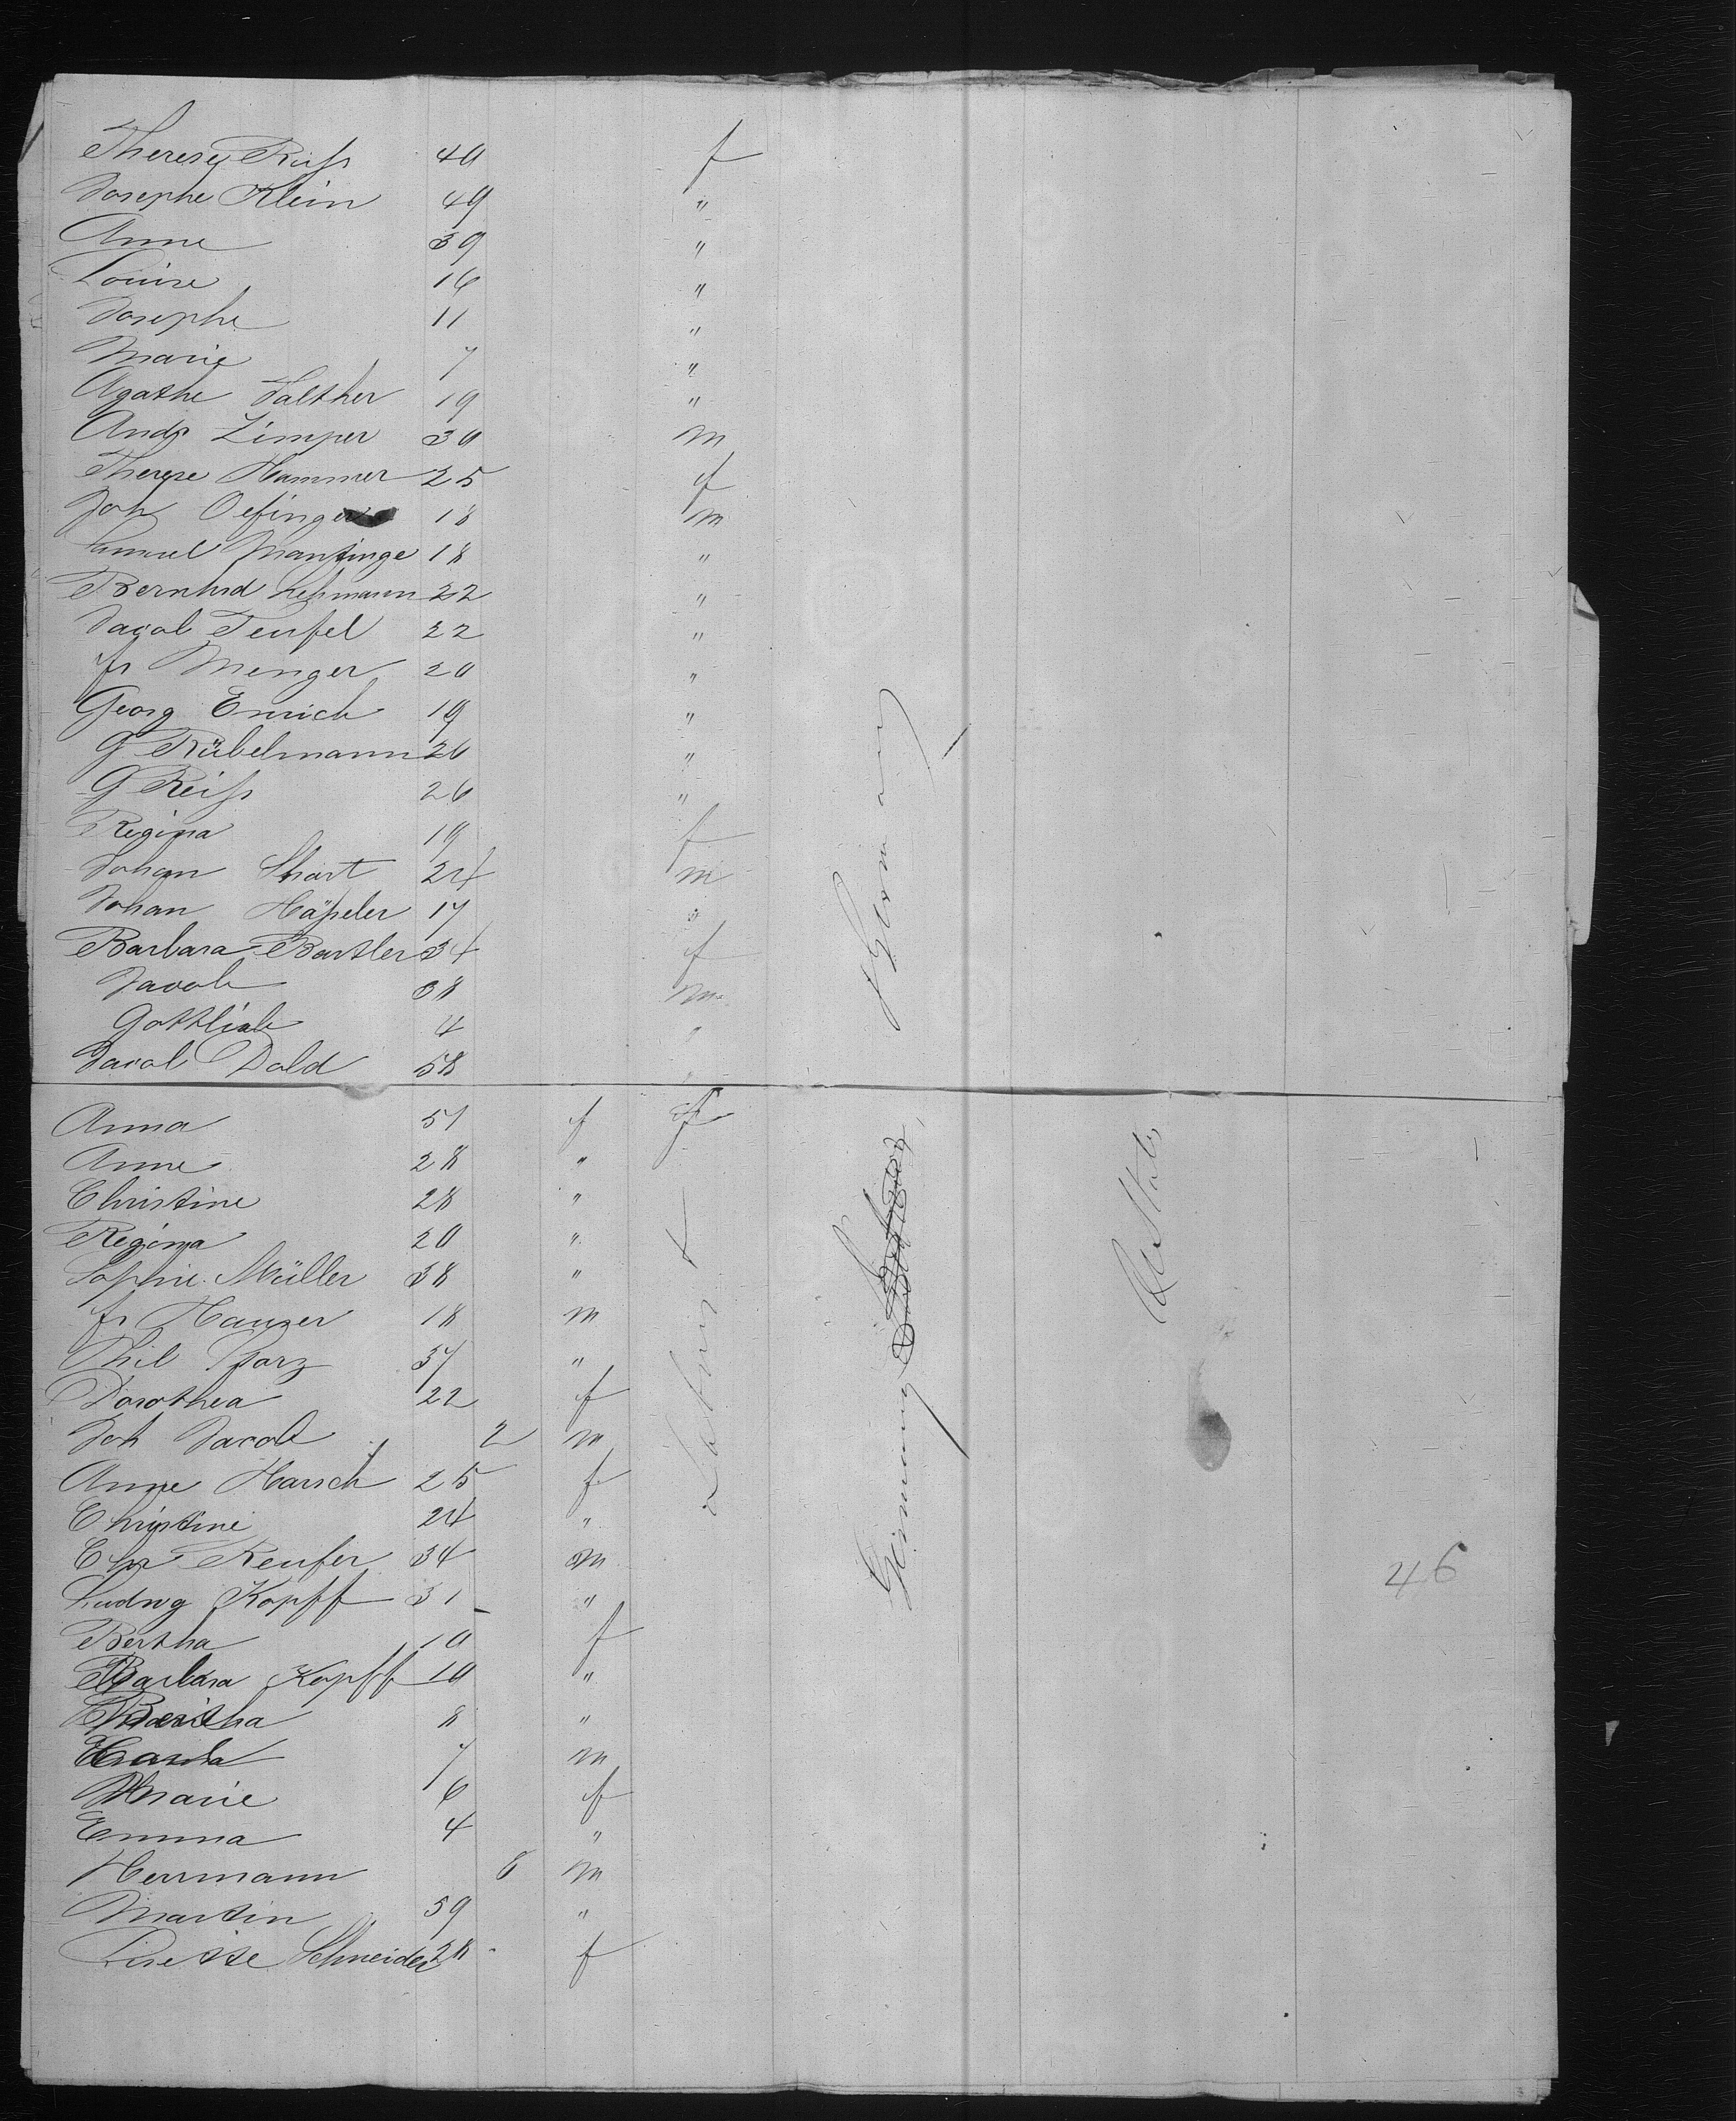 Therese Reiß 40 f
Josephe Klein 49 "
Anne 39 "
Louise 16 "
Josephe 11 "
Marie 7 "
Agathe Walther 19 "
Andr Zimper 30 m
Therese Hammer 25 f
Joh Oefinger 18 m
Samuel Mantinge 18 "
Bernhrd Lehmann 22 "
Jacob Teufel 22 "
Fr Menger 20 "
Georg Emich 19 "
G Rübelmann 26 "
G Reiß 26 "
Regina 19 f
Johan 24 m
Johan Häßeler 17 "
Barbara Bartler 34 f
Jacob 38 m
Gottlieb 4 "
Jacob Dold 58 "
Germany
Anna 51 f f
Anne 28 "
Christine 28 "
Regina 20 "
Sophie Müller 38 "
Fr Hauser 18 m
Phil 37 "
Dorothea 22 f
Joh Jacob 2 m
Anne Harsch 25 f
Christine 24 "
Chr Renfer 34 m
Ludwg Kopff 31 "
Bertha 10 f
Barbara Kopff 10 "
Bertha 8 "
7 m
Marie 6 f
Emma 4 "
Herrmann 8 m
Martin 59 "
Schneider 28 f
Germany
States
46